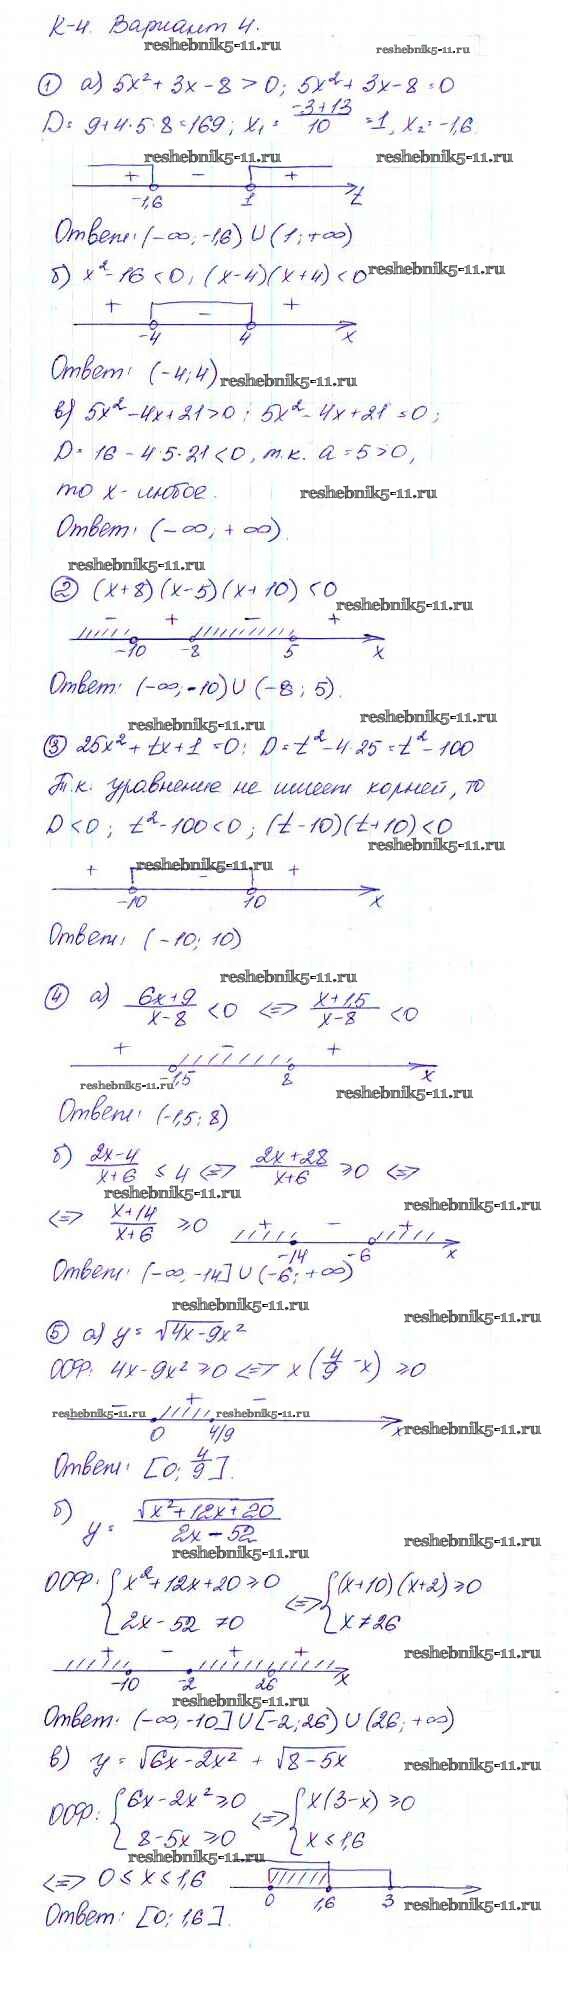 К-4. Вариант 4.
reshebnik5-11.ru reshebnik5-11.ru
① а) 5x² + 3x - 8 > 0; 5x² + 3x - 8 = 0
D = 9+4·5·8 = 169; x₁ = (-3+13)/10 = 1, x₂ = -1,6.
reshebnik5-11.ru reshebnik5-11.ru
+ - +
-1,6 1 t
Ответ: (-∞; -1,6) ∪ (1; +∞)
б) x² - 16 < 0; (x-4)(x+4) < 0 reshebnik5-11.ru
+ - +
-4 4 x
Ответ: (-4; 4) reshebnik5-11.ru
в) 5x² - 4x + 21 > 0; 5x² - 4x + 21 = 0;
D = 16 - 4·5·21 < 0, т.к. a = 5 > 0,
то x - любое. reshebnik5-11.ru
Ответ: (-∞; +∞).
reshebnik5-11.ru
② (x+8)(x-5)(x+10) < 0
reshebnik5-11.ru
- + - +
-10 -8 5 x
Ответ: (-∞; -10) ∪ (-8; 5).
reshebnik5-11.ru reshebnik5-11.ru
③ 25x² + tx + 1 = 0; D = t² - 4·25 = t² - 100
Т.к. уравнение не имеет корней, то
D < 0; t² - 100 < 0; (t-10)(t+10) < 0
reshebnik5-11.ru
reshebnik5-11.ru
+ - +
-10 10 x
Ответ: (-10; 10)
reshebnik5-11.ru
④ а) (6x+9)/(x-8) < 0 <=> (x+1,5)/(x-8) < 0
+ - +
-1,5 8 x
reshebnik5-11.ru reshebnik5-11.ru
Ответ: (-1,5; 8)
б) (2x-4)/(x+6) ≤ 4 <=> (2x+28)/(x+6) ≥ 0 <=>
reshebnik5-11.ru reshebnik5-11.ru
<=> (x+14)/(x+6) ≥ 0
+ - +
-14 -6 x
Ответ: (-∞; -14] ∪ (-6; +∞)
reshebnik5-11.ru
⑤ а) y = √(4x-9x²) reshebnik5-11.ru
ООФ: 4x - 9x² ≥ 0 <=> x(4/9 - x) ≥ 0
- + -
reshebnik5-11.ru reshebnik5-11.ru
0 4/9 x reshebnik5-11.ru
Ответ: [0; 4/9].
б) y = √(x²+12x+20)/(2x-52)
reshebnik5-11.ru
reshebnik5-11.ru
ООФ: { x²+12x+20 ≥ 0 <=> { (x+10)(x+2) ≥ 0
2x - 52 ≠ 0 x ≠ 26
+ - + + reshebnik5-11.ru
-10 -2 26 x
reshebnik5-11.ru
Ответ: (-∞; -10] ∪ [-2; 26) ∪ (26; +∞)
в) y = √(6x-2x²) + √(8-5x) reshebnik5-11.ru
ООФ: { 6x - 2x² ≥ 0 <=> { x(3-x) ≥ 0
8 - 5x ≥ 0 x ≤ 1,6
reshebnik5-11.ru
<=> 0 ≤ x ≤ 1,6
0 1,6 3
Ответ: [0; 1,6]. reshebnik5-11.ru